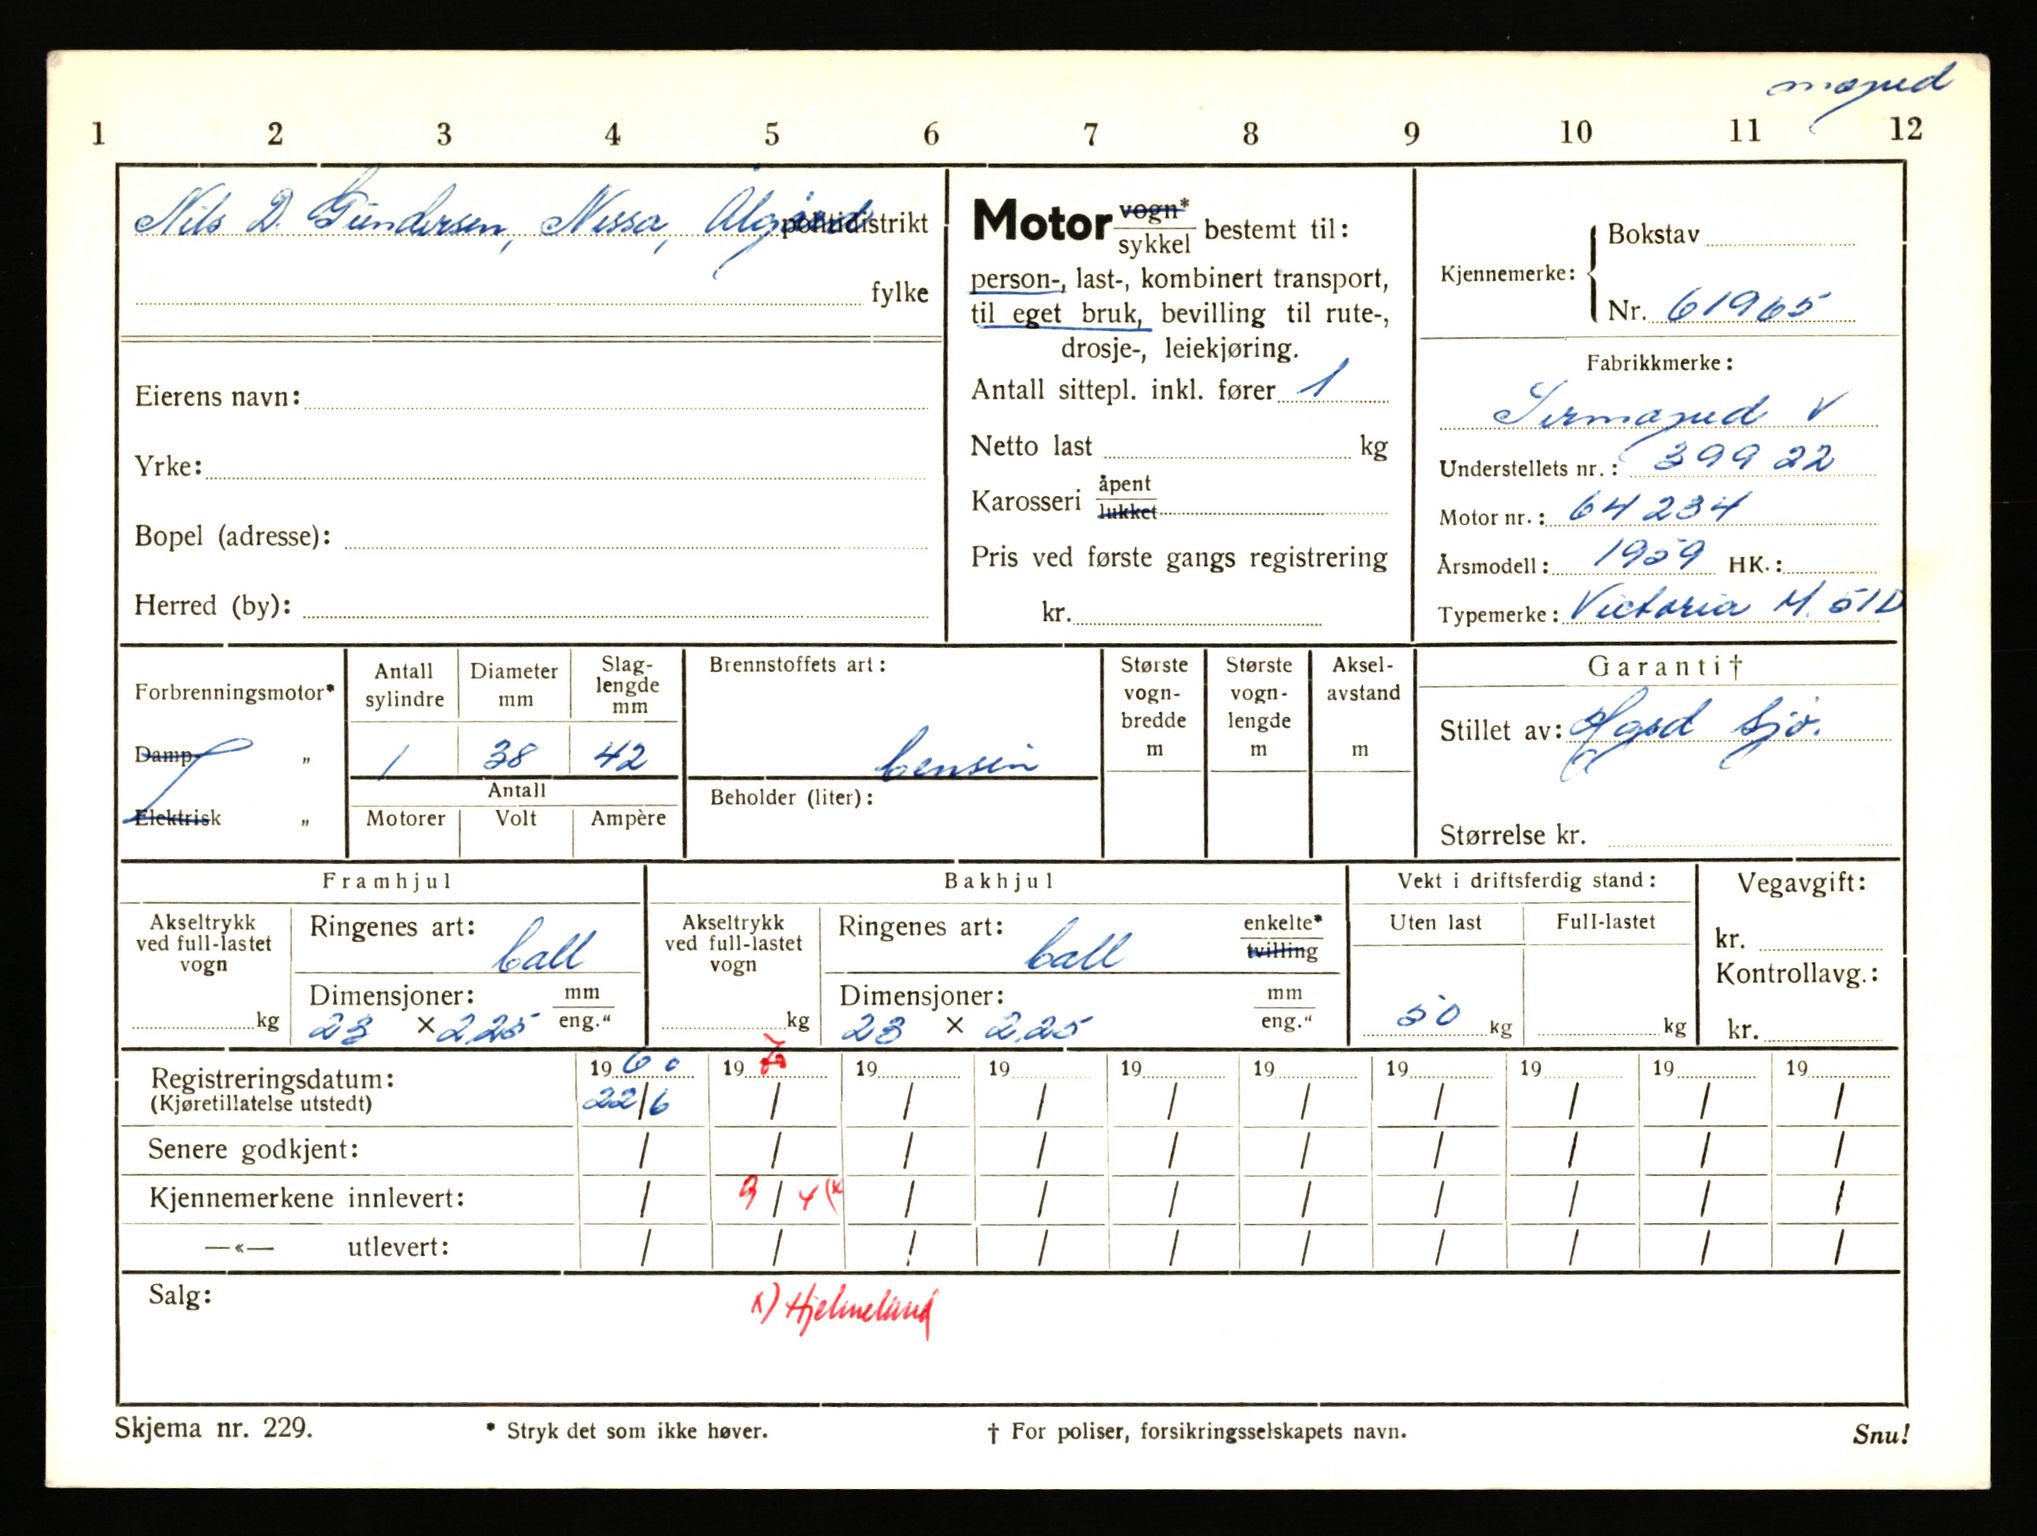 moped
1 2 3 4 5 6 7 8 9 10 11 12
Nils D. Gundersen, Nessa, Ålgård politidistrikt
fylke
Eierens navn:
Yrke:
Bopel (adresse):
Herred (by):
Motor vogn* / sykkel bestemt til:
person-, last-, kombinert transport,
til eget bruk, bevilling til rute-,
drosje-, leiekjøring.
Antall sittepl. inkl. fører 1
Netto last kg
Karosseri åpent / lukket
Pris ved første gangs registrering
kr.
Kjennemerke: Bokstav
Nr. 61965
Fabrikkmerke:
moped V
Understellets nr.: 39922
Motor nr.: 64234
Årsmodell: 1959 HK.:
Typemerke: Victoria M.51D
Forbrenningsmotor*
Damp „
Elektrisk „
Antall sylindre 1
Diameter mm 38
Slag-lengde mm 42
Antall
Motorer Volt Ampère
Brennstoffets art:
bensin
Beholder (liter):
Største vogn-bredde m
Største vogn-lengde m
Aksel-avstand m
Garanti†
Stillet av: sjø.
Størrelse kr.
Framhjul
Akseltrykk ved full-lastet vogn kg
Ringenes art: ball
Dimensjoner: mm / eng."
23 × 2,25
Bakhjul
Akseltrykk ved full-lastet vogn kg
Ringenes art: ball enkelte* / tvilling
Dimensjoner: mm / eng."
23 × 2,25
Vekt i driftsferdig stand:
Uten last Full-lastet
50 kg kg
Vegavgift:
kr.
Kontrollavg.:
kr.
Registreringsdatum: 1960 19 19 19 19 19 19 19 19 19
(Kjøretillatelse utstedt) 22/6 / / / / / / / / /
Senere godkjent: / / / / / / / / / /
Kjennemerkene innlevert: / 9/4 (x / / / / / / / /
—«— utlevert: / / / / / / / / / /
Salg:
x) Hjelmeland
Skjema nr. 229. * Stryk det som ikke høver. † For poliser, forsikringsselskapets navn. Snu!